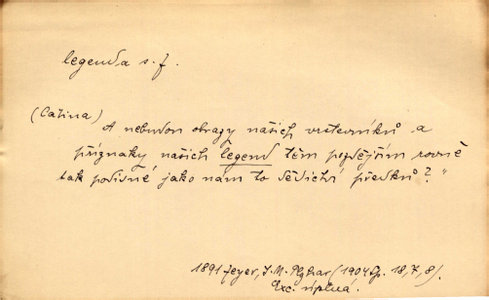 legenda s. f.
(Cažina)
A nebudou obrazy našich vrstevníků a
příznaky našich legend těm pozdějším rovně
tak podivné jako nám to dědictví předků?"
1891 Zeyer, J. M. Plojhar (1904 Sp. 18, 7, 8).
Exc. úplná.